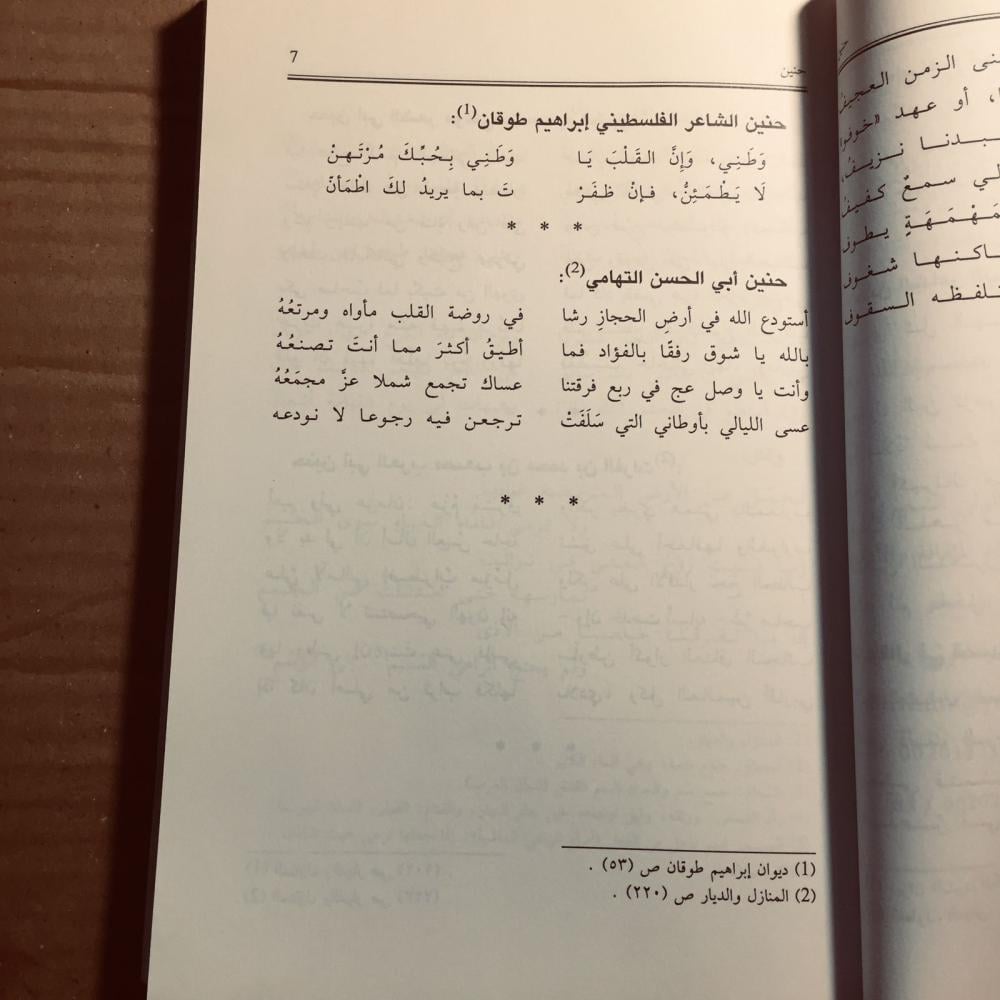 حنين
7
حنين الشاعر الفلسطيني إبراهيم طوقان(1):
وَطَنِي، وَإِنَّ القَلْبَ يَا وَطَنِي بِحُبِّكَ مُرْتَهنْ
لَا يَطْمَئِنُّ، فإنْ ظفَرْ تَ بما يريدُ لكَ اطْمَأنّ
* * *
حنين أبي الحسن التهامي(2):
أستودع الله في أرضِ الحجازِ رشا في روضة القلب مأواه ومرتعُهُ
بالله يا شوق رفقًا بالفؤاد فما أطيقُ أكثرَ مما أنتَ تصنعُهُ
وأنت يا وصل عج في ربع فرقتنا عساك تجمع شملا عزَّ مجمَعُهُ
عسى الليالي بأوطاني التي سَلَفَتْ ترجعن فيه رجوعا لا نودعه
* * *
(1) ديوان إبراهيم طوقان ص (٥٣) .
(2) المنازل والديار ص (٢٢٠) .
الزمن العجيف
أو عهد «خوفوا
نزيف
سمعٌ كفيف
يطوف
شغوف
السقوف